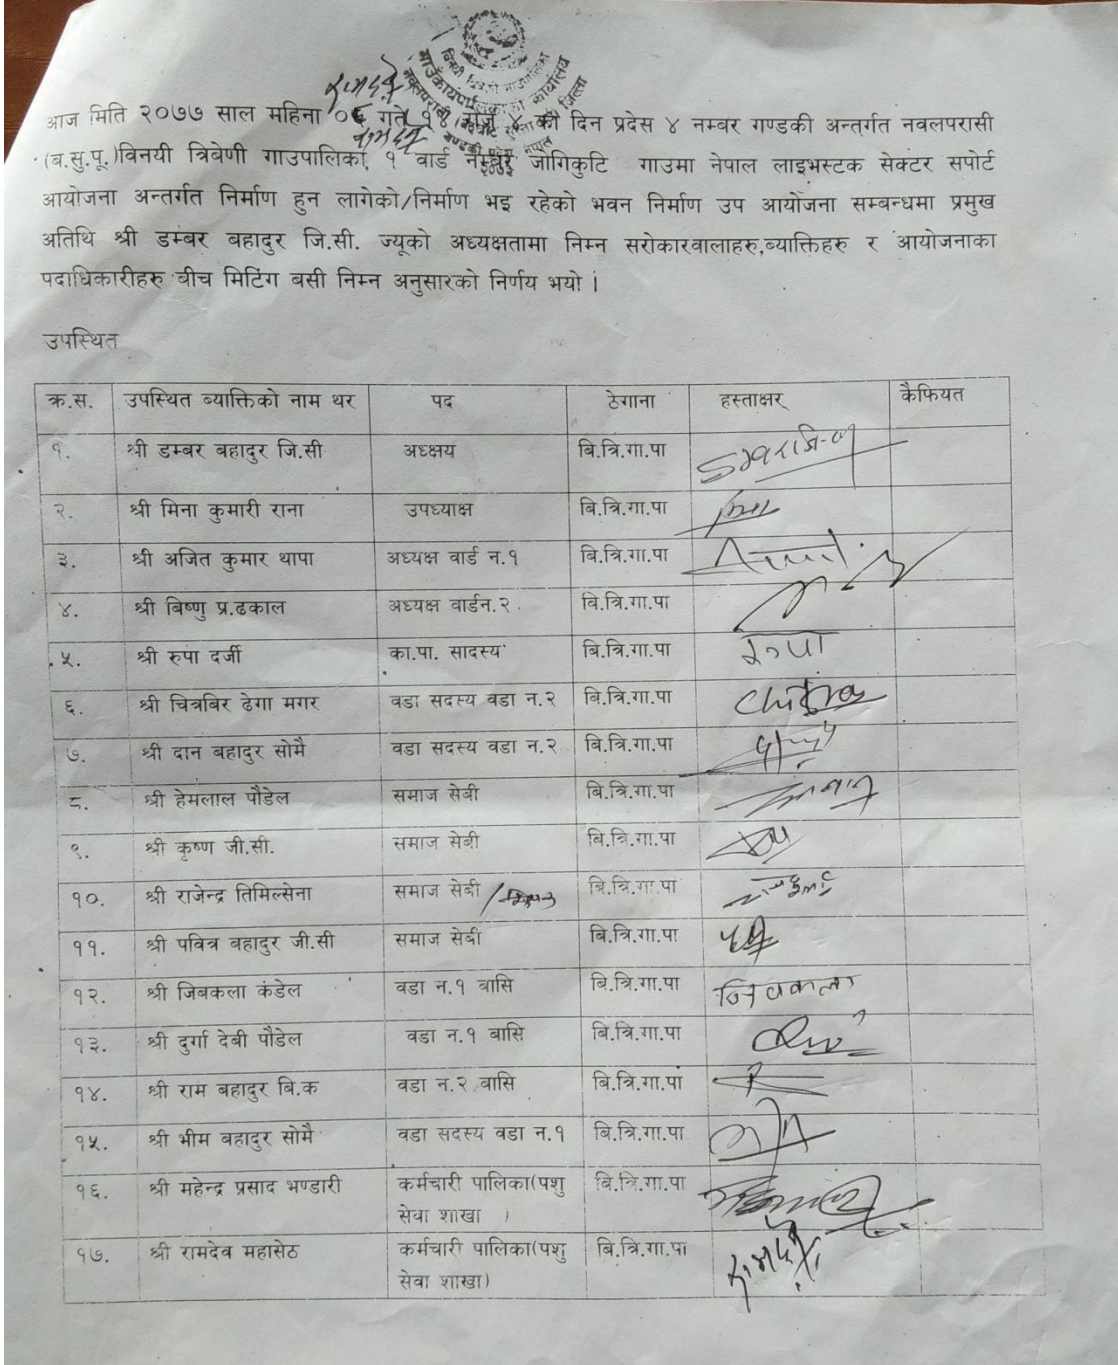 विनयी त्रिवेणी गाउँपालिका
गाउँकार्यपालिकाको कार्यालय
आज मिति २०७७ साल महिना ०६ गते १४ रोज ४ का दिन प्रदेस ४ नम्बर गण्डकी अन्तर्गत नवलपरासी
(ब.सु.पू.)विनयी त्रिबेणी गाउपालिका १ वार्ड नम्बर जोगिकुटि गाउमा नेपाल लाइभस्टक सेक्टर सपोर्ट
आयोजना अन्तर्गत निर्माण हुन लागेको/निर्माण भइ रहेको भवन निर्माण उप आयोजना सम्बन्धमा प्रमुख
अतिथि श्री डम्बर बहादुर जि.सी. ज्यूको अध्यक्षतामा निम्न सरोकारवालाहरु,ब्याक्तिहरु र आयोजनाका
पदाधिकारीहरु बीच मिटिंग बसी निम्न अनुसारको निर्णय भयो |
उपस्थित
क्र.स. उपस्थित ब्याक्तिको नाम थर पद ठेगाना हस्ताक्षर् कैफियत
१. श्री डम्बर बहादुर जि.सी अध्क्षय बि.त्रि.गा.पा
२. श्री मिना कुमारी राना उपध्याक्ष बि.त्रि.गा.पा
३. श्री अजित कुमार थापा अध्यक्ष वार्ड न.१ बि.त्रि.गा.पा
४. श्री बिष्णु प्र.ढकाल अध्यक्ष वार्डन.२ बि.त्रि.गा.पा
५. श्री रुपा दर्जी का.पा. सादस्य बि.त्रि.गा.पा रुपा
६. श्री चित्रबिर ढेगा मगर वडा सदस्य वडा न.२ बि.त्रि.गा.पा
७. श्री दान बहादुर सोमै वडा सदस्य वडा न.२ बि.त्रि.गा.पा
८. श्री हेमलाल पौडेल समाज सेबी बि.त्रि.गा.पा
९. श्री कृष्ण जी.सी. समाज सेबी बि.त्रि.गा.पा
१०. श्री राजेन्द्र तिमिल्सेना समाज सेबी बि.त्रि.गा.पा
११. श्री पवित्र बहादुर जी.सी समाज सेबी बि.त्रि.गा.पा
१२. श्री जिबकला कंडेल वडा न.१ बासि बि.त्रि.गा.पा जिवकला
१३. श्री दुर्गा देबी पौडेल वडा न.१ बासि बि.त्रि.गा.पा
१४. श्री राम बहादुर बि.क वडा न.२ बासि बि.त्रि.गा.पा
१५. श्री भीम बहादुर सोमै वडा सदस्य वडा न.१ बि.त्रि.गा.पा
१६. श्री महेन्द्र प्रसाद भण्डारी कर्मचारी पालिका(पशु बि.त्रि.गा.पा
सेवा शाखा )
१७. श्री रामदेव महासेठ कर्मचारी पालिका(पशु बि.त्रि.गा.पा रामदेव
सेवा शाखा)